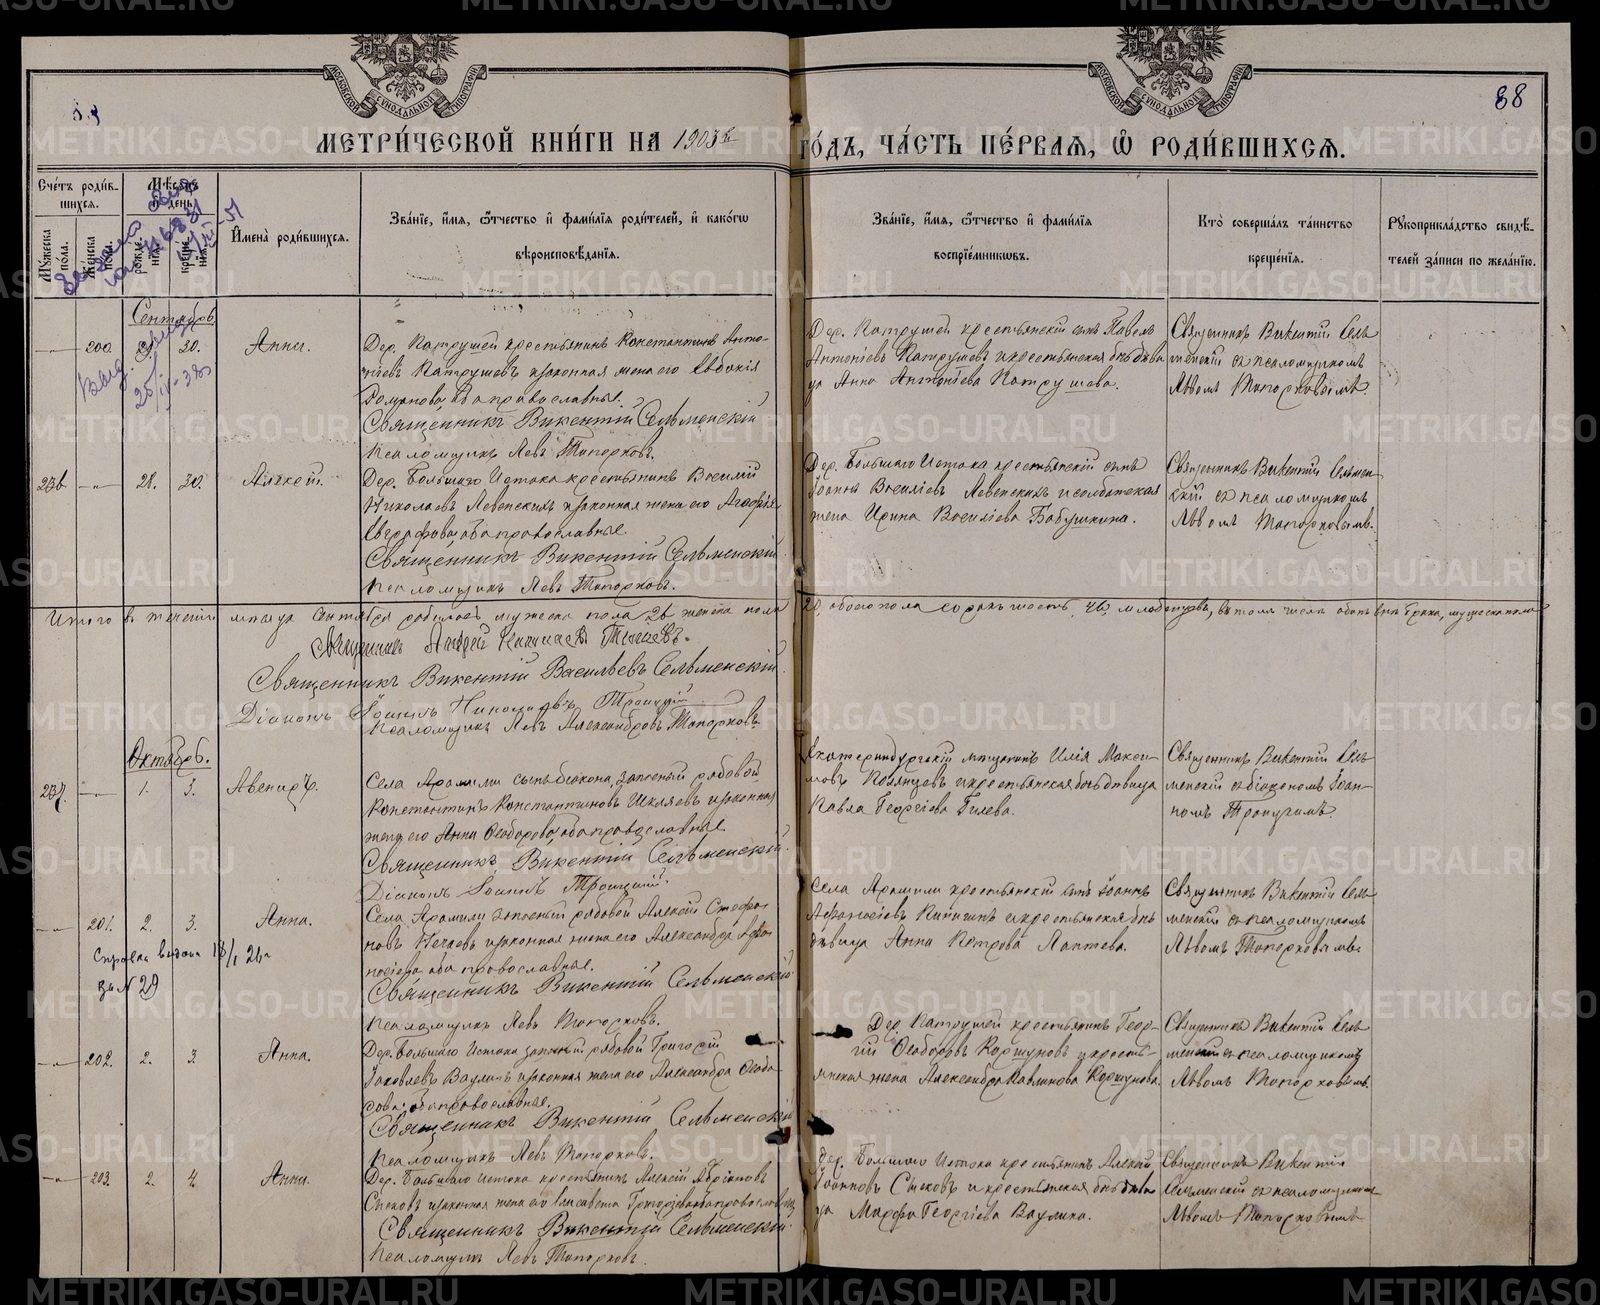 88
МЕТРИ́ЧЕСКОЙ КНИ́ГИ НА 1903й ГО́ДЪ, ЧА́СТЬ ПЕ́РВАѦ, Ѽ РОДИ́ВШИХСѦ.
Сче́тъ роди́вшихсѧ.
Му́жеска по́ла.
Же́нска по́ла.
Мѣ́сѧцъ и҆ де́нь.
рожде́нїѧ.
креще́нїѧ.
И҆мена̀ роди́вшихсѧ.
Зва́нїе, и҆́мѧ, ѻ҆́тчество и҆ фами́лїѧ роди́телей, и҆ како́гѡ
вѣроисповѣ́данїѧ.
Зва́нїе, и҆́мѧ, ѻ҆́тчество и҆ фами́лїѧ
воспрїе́мникѡвъ.
Кто̀ соверша́лъ та́инство
креще́нїѧ.
Рꙋкоприкла́дство свидѣ́-
телей за́писи по жела́нїю.
Сентябрь
200. 30. Анна.
Дер. Патрушей крестьянинъ Константинъ Анто-
ніевъ Патрушевъ и законная жена его Евдокія
Романова, оба православные.
Священникъ Викентій Сельменскій
Псаломщикъ Левъ Топорковъ.
Дер. Патрушей крестьянскій сынъ Павелъ
Антоніевъ Патрушевъ и крестьянская дѣвица
Анна Антоніева Патрушева.
Священникъ Викентій Сель-
менскій съ псаломщикомъ
Львомъ Топорковымъ.
236 28. 30. Алексій.
Дер. Большаго Истока крестьянинъ Василій
Николаевъ Левенскихъ и законная жена его Агафія
Евграфова, оба православные.
Священникъ Викентій Сельменскій
Псаломщикъ Левъ Топорковъ.
Дер. Большаго Истока крестьянскій сынъ
Іоаннъ Василіевъ Левенскихъ и солдатская
жена Ирина Василіева Бабушкина.
Священникъ Викентій Сельмен-
скій съ псаломщикомъ
Львомъ Топорковымъ.
Итого въ теченіи мѣсяца Сентября родилось мужеска пола 26 женска пола 20, обоего пола сорокъ шесть (46) младенцевъ, въ томъ числѣ
Священникъ Андрей
Священникъ Викентій Васильевъ Сельменскій
Діаконъ Іоаннъ Николаевъ Троицкій
Псаломщикъ Левъ Александровъ Топорковъ.
Октябрь.
237. 1. 3. Авениръ.
Села Арамили сынъ діакона, запасный рядовой
Константинъ Константиновъ Шкляевъ и законная
жена его Анна Ѳеодорова, оба православные.
Священникъ Викентій Сельменскій
Діаконъ Іоаннъ Троицкій.
Екатеринбургскій мѣщанинъ Илія Макси-
мовъ и крестьянская дѣвица
Павла Георгіева Гилева.
Священникъ Викентій Сель-
менскій съ діакономъ Іоан-
номъ Троицкимъ.
201. 2. 3. Анна.
Села Арамили запасный рядовой Алексій Стефа-
новъ Нечаевъ и законная жена его Александра Аѳа-
насіева, оба православные.
Священникъ Викентій Сельменскій
Псаломщикъ Левъ Топорковъ.
Села Арамили крестьянскій сынъ Іоаннъ
Аѳанасіевъ и крестьянская
дѣвица Анна Петрова Лаптева.
Священникъ Викентій Сель-
менскій съ псаломщикомъ
Львомъ Топорковымъ.
Справка выдана 18/I 26г
за № 29
202. 2. 3. Анна.
Дер. Большаго Истока запасный рядовой Григорій
Іаковлевъ Ваулинъ и законная жена его Александра Ѳеодо-
рова, оба православные.
Священникъ Викентій Сельменскій
Псаломщикъ Левъ Топорковъ.
Дер. Патрушей крестьянинъ Геор-
гій Ѳеодоровъ Коршуновъ и кресть-
янская жена Александра Павлинова Коршунова.
Священникъ Викентій Сель-
менскій съ псаломщикомъ
Львомъ Топорковымъ.
203. 2. 4. Анна.
Дер. Большаго Истока крестьянинъ Алексій
и законная жена его Елисавета Григорьева, оба православные
Священникъ Викентій Сельменскій
Псаломщикъ Левъ Топорковъ.
Дер. Большаго Истока крестьянинъ Алексій
Іоанновъ и крестьянская дѣвица
Марѳа Георгіева Ваулина.
Священникъ Викентій
Сельменскій съ псаломщикомъ
Львомъ Топорковымъ
METRIKI.GASO-URAL.RU